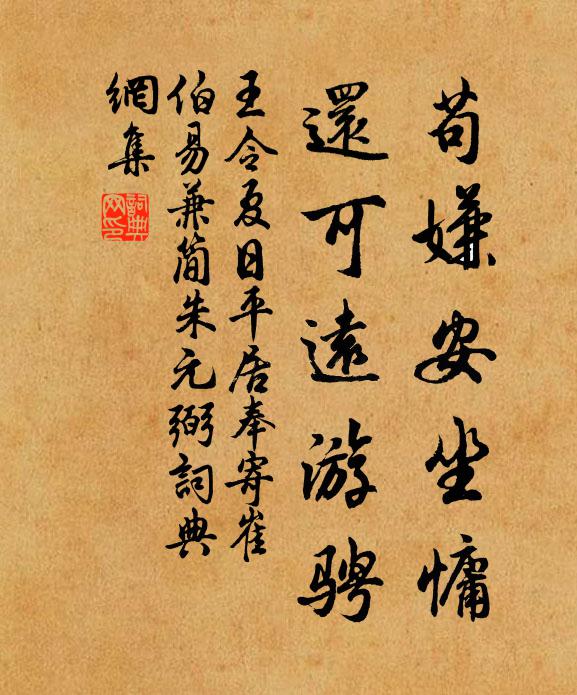 苟嫌安坐慵
還可遠游骋
王令夏日平居奉寄崔
伯易兼簡朱元弼詞典
網集
詞典
网印